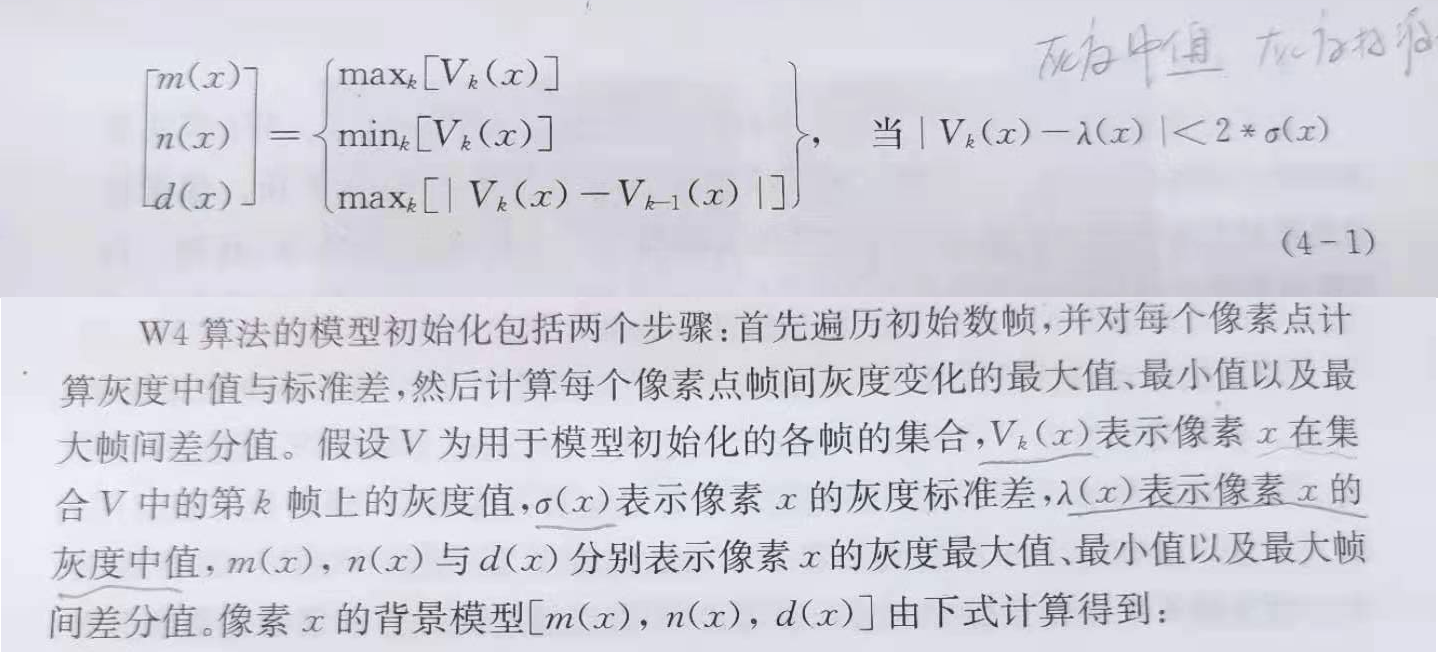 灰度中值
[m(x) n(x) d(x)] = {max_k[V_k(x)] min_k[V_k(x)] max_k[|V_k(x)−V_{k−1}(x)|]}, 当|V_k(x)−λ(x)|<2*σ(x)
(4-1)
W4 算法的模型初始化包括两个步骤:首先遍历初始数帧,并对每个像素点计
算灰度中值与标准差,然后计算每个像素点帧间灰度变化的最大值、最小值以及最
大帧间差分值。假设 V 为用于模型初始化的各帧的集合,V_k(x)表示像素 x 在集
合 V 中的第 k 帧上的灰度值,σ(x)表示像素 x 的灰度标准差,λ(x)表示像素 x 的
灰度中值, m(x), n(x) 与 d(x) 分别表示像素 x 的灰度最大值、最小值以及最大帧
间差分值。像素 x 的背景模型[m(x), n(x), d(x)] 由下式计算得到: